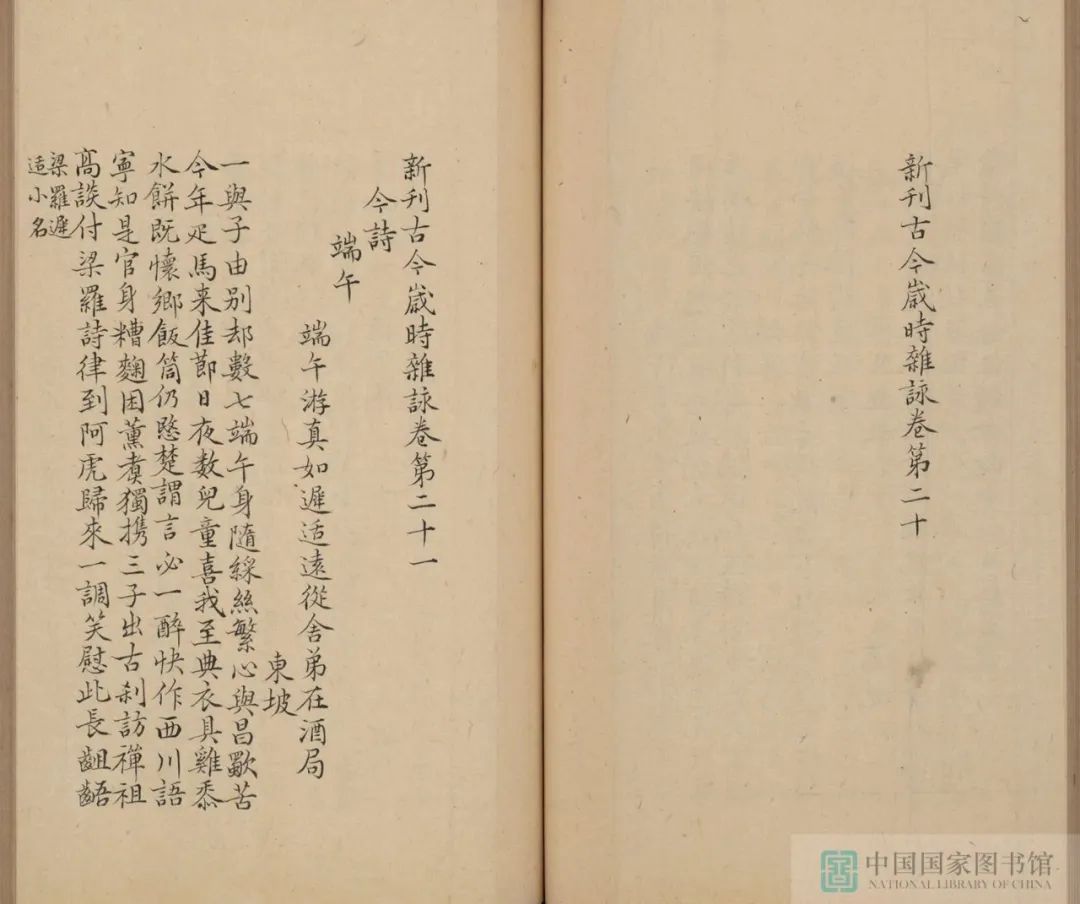 新刊古今歲時雜詠卷第二十
新刊古今歲時雜詠卷第二十一
今詩
端午
端午游真如遲适遠從舍弟在酒局
東坡
一與子由别却數七端午身隨綵絲繁心與昌歜苦
今年疋馬来佳節日夜数兒童喜我至典衣具雞黍
水餅既懷鄉飯筒仍愍楚謂言必一醉快作西川語
寧知是官身糟麴困薰煑獨携三子出古刹訪禪祖
高談付梁羅詩律到阿虎歸來一調笑慰此長齟齬
梁羅遲
适小名
中国国家图书馆
NATIONAL LIBRARY OF CHINA